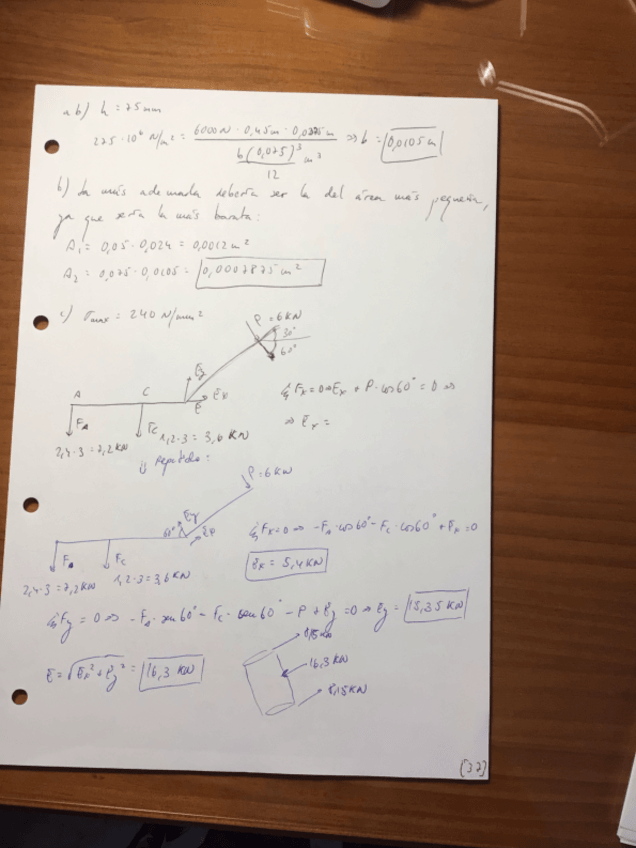 ab) h = 75 mm
275·10⁶ N/m² = 6000N · 0,45m · 0,0375m / (b(0,075)³ / 12 m⁴) ⇒ b = 0,0105 m
b) La más adecuada debería ser la del área más pequeña,
ya que sería la más barata:
A₁ = 0,05 · 0,024 = 0,0012 m²
A₂ = 0,075 · 0,0105 = 0,0007875 m²
c) σmax = 240 N/mm²
P = 6 KN
30°
60°
A C Ey Ex
E
FA FC
2,4·3 = 7,2 KN 1,2·3 = 3,6 KN
Σ Fx = 0 ⇒ Ex + P·cos60° = 0 ⇒
⇒ Ex =
Repetido:
P = 6 KN
60° Ey Ex
FA FC
2,4·3 = 7,2 KN 1,2·3 = 3,6 KN
Σ Fx = 0 ⇒ -FA·cos60° - FC·cos60° + Ex = 0
Ex = 5,4 KN
Σ Fy = 0 ⇒ -FA·sen60° - FC·sen60° - P + Ey = 0 ⇒ Ey = 15,35 KN
E = √Ex² + Ey² = 16,3 KN
16,3 KN
8,15 KN
[37]